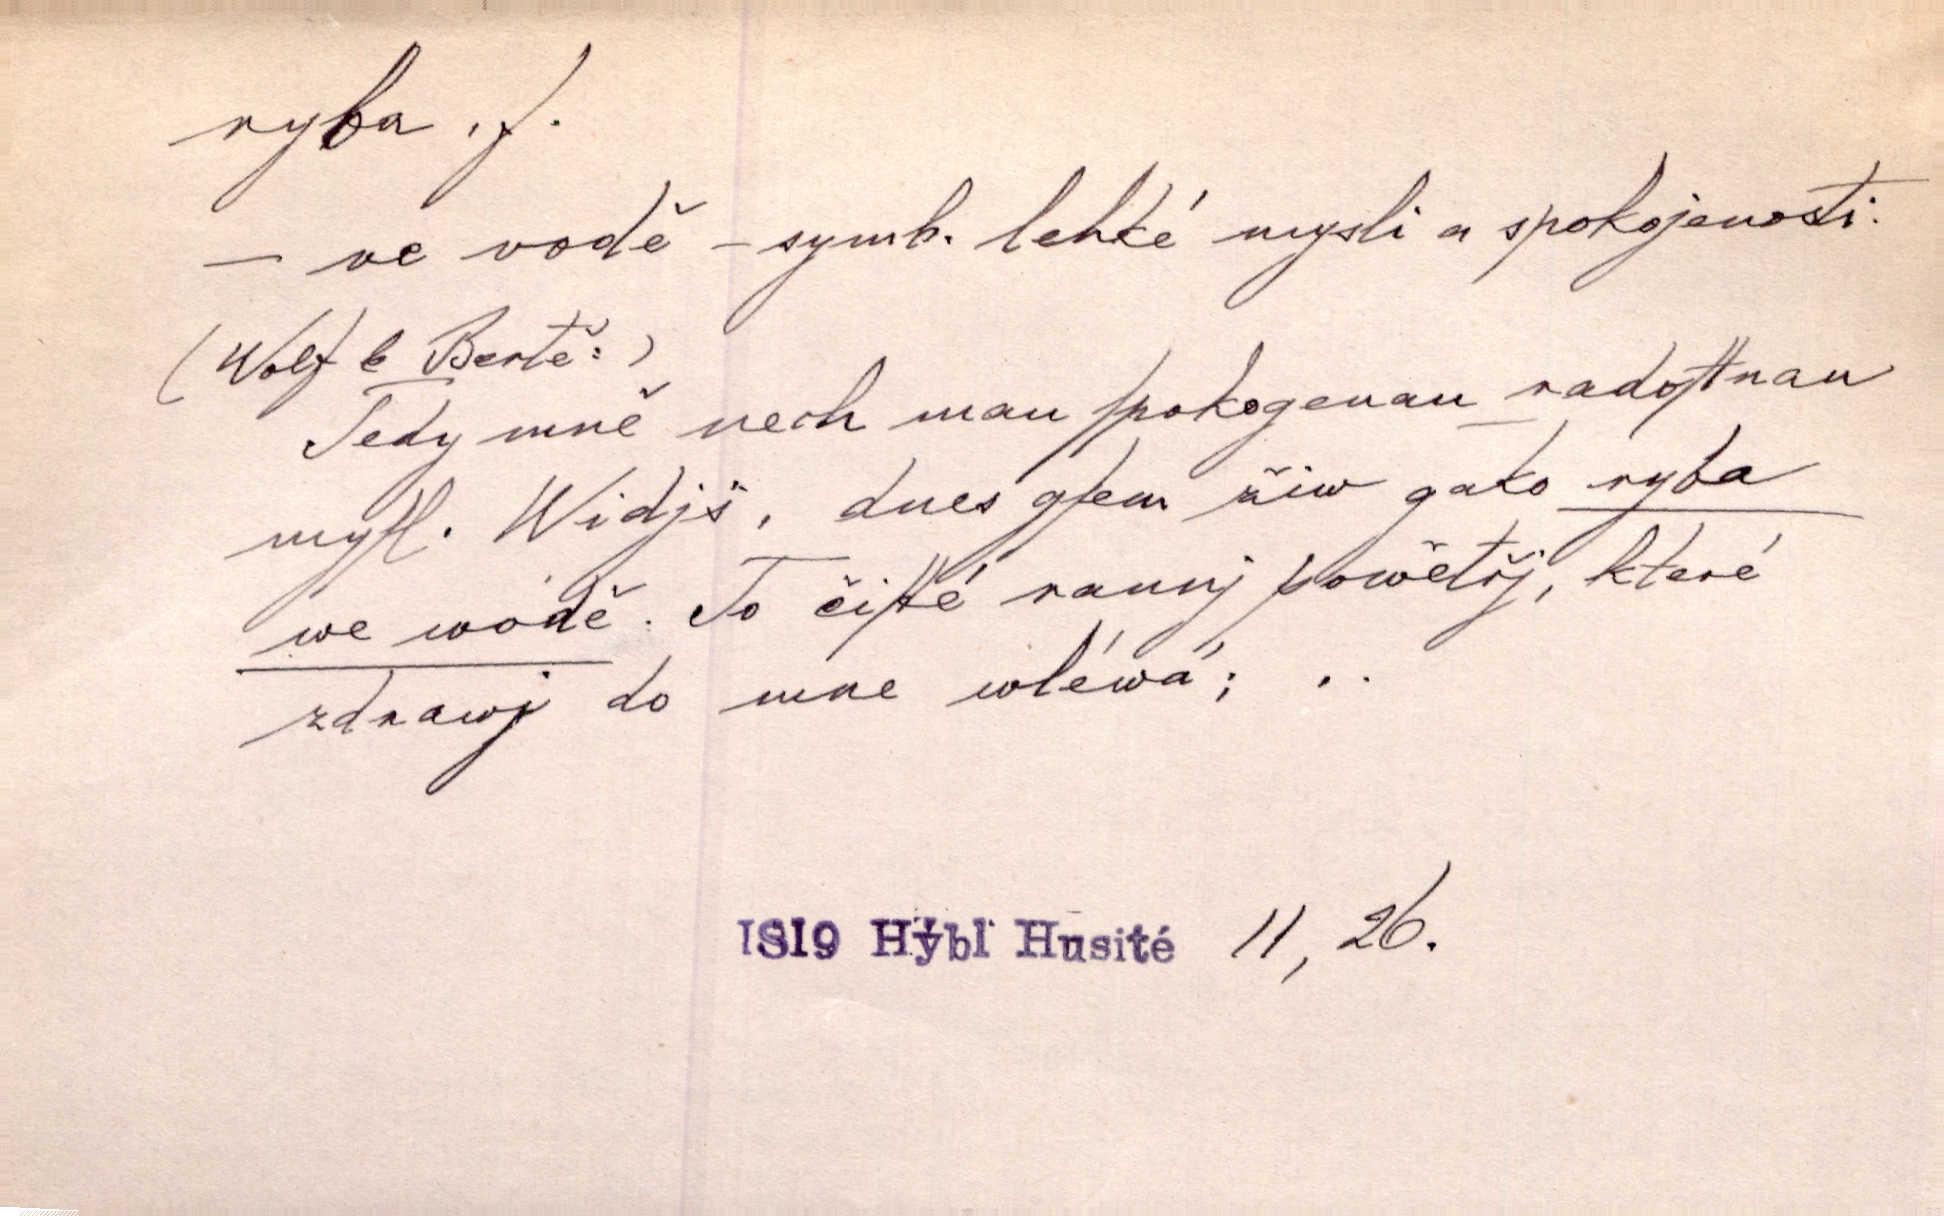 ryba, f.
— ve vodě – symb. lehké mysli a spokojenosti:
(Wolf k Bertě:)
Tedy mně nech mau ſpokogenau radoſtnau
myſl. Widjš, dnes gſem žiw gako ryba
we wodě. To čiſté rannj powětřj, které
zdrawj do mne wléwá; ..
1819 Hýbl Husité 11, 26.